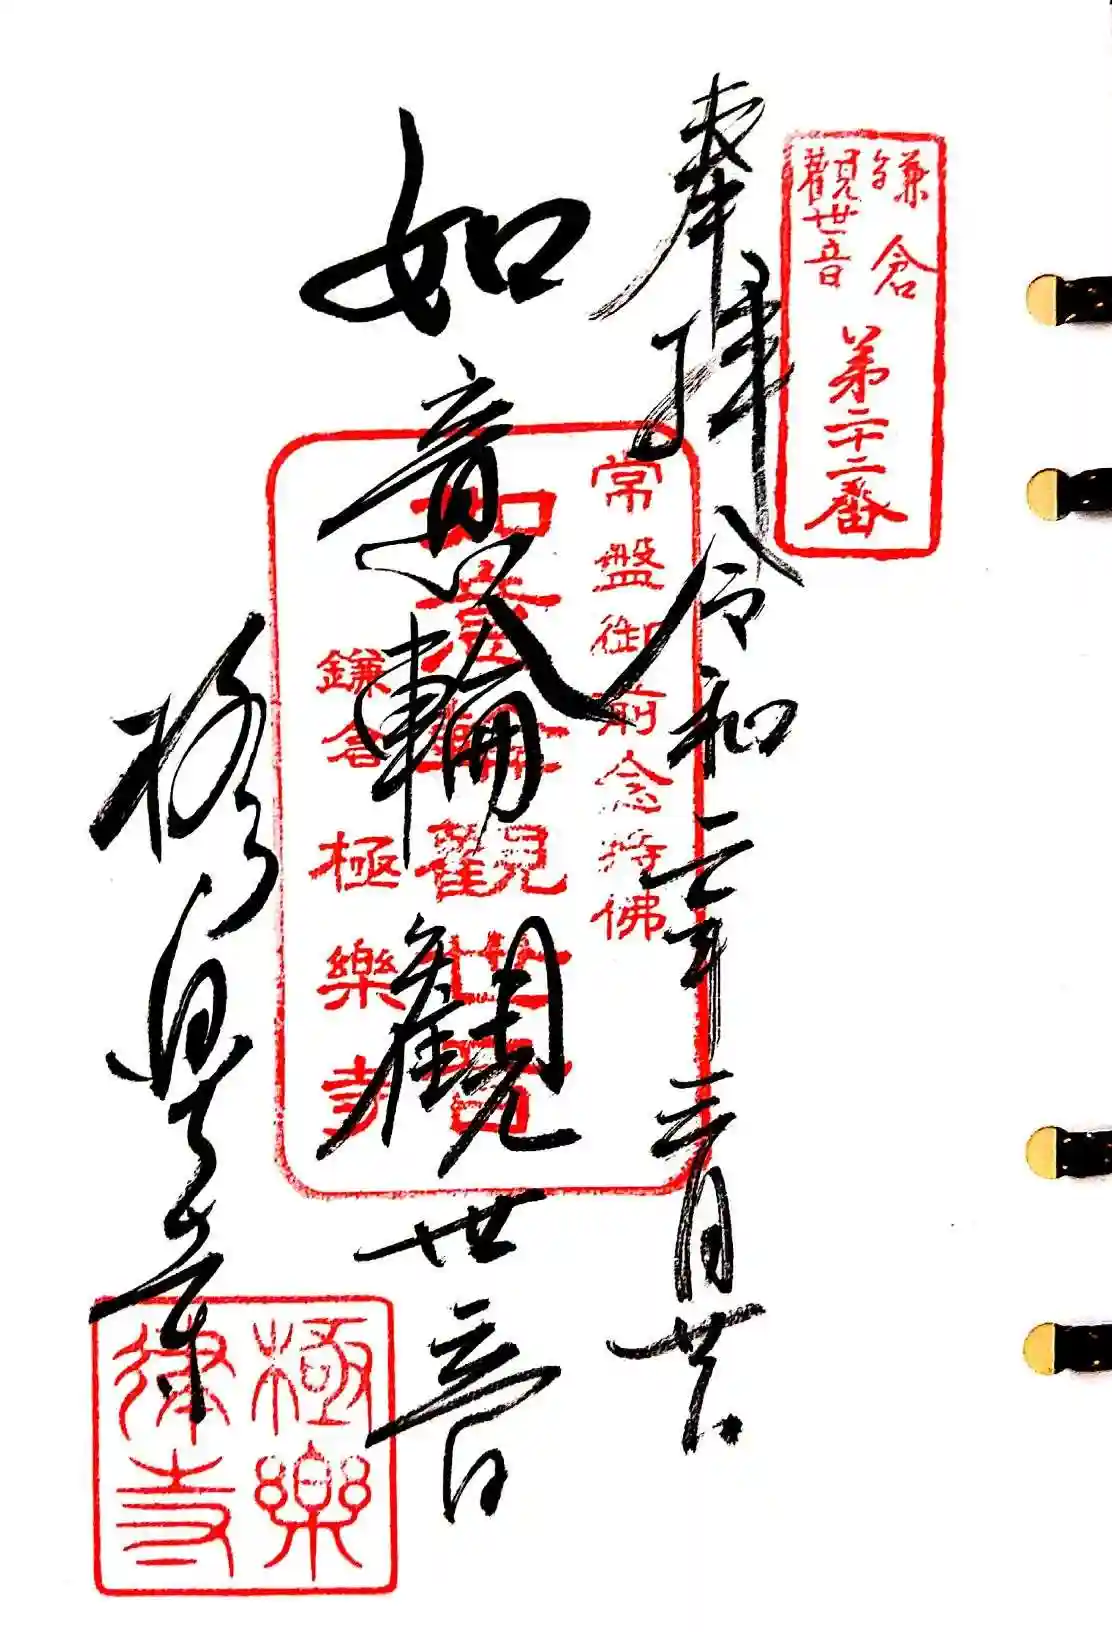 鎌倉
觀世音
第二十二番
奉拝 令和 年 月廿
常盤御前念持佛
如意輪觀世音
鎌倉極樂寺
如意輪観世音
極楽寺
極樂
律寺